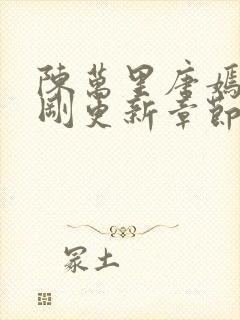 陳萬里唐嫣
剛更新章節
冢土